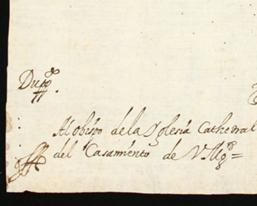 Dupdo
Al obispo de la Yglesia Cathedral
del Casamento de V. Mgd =